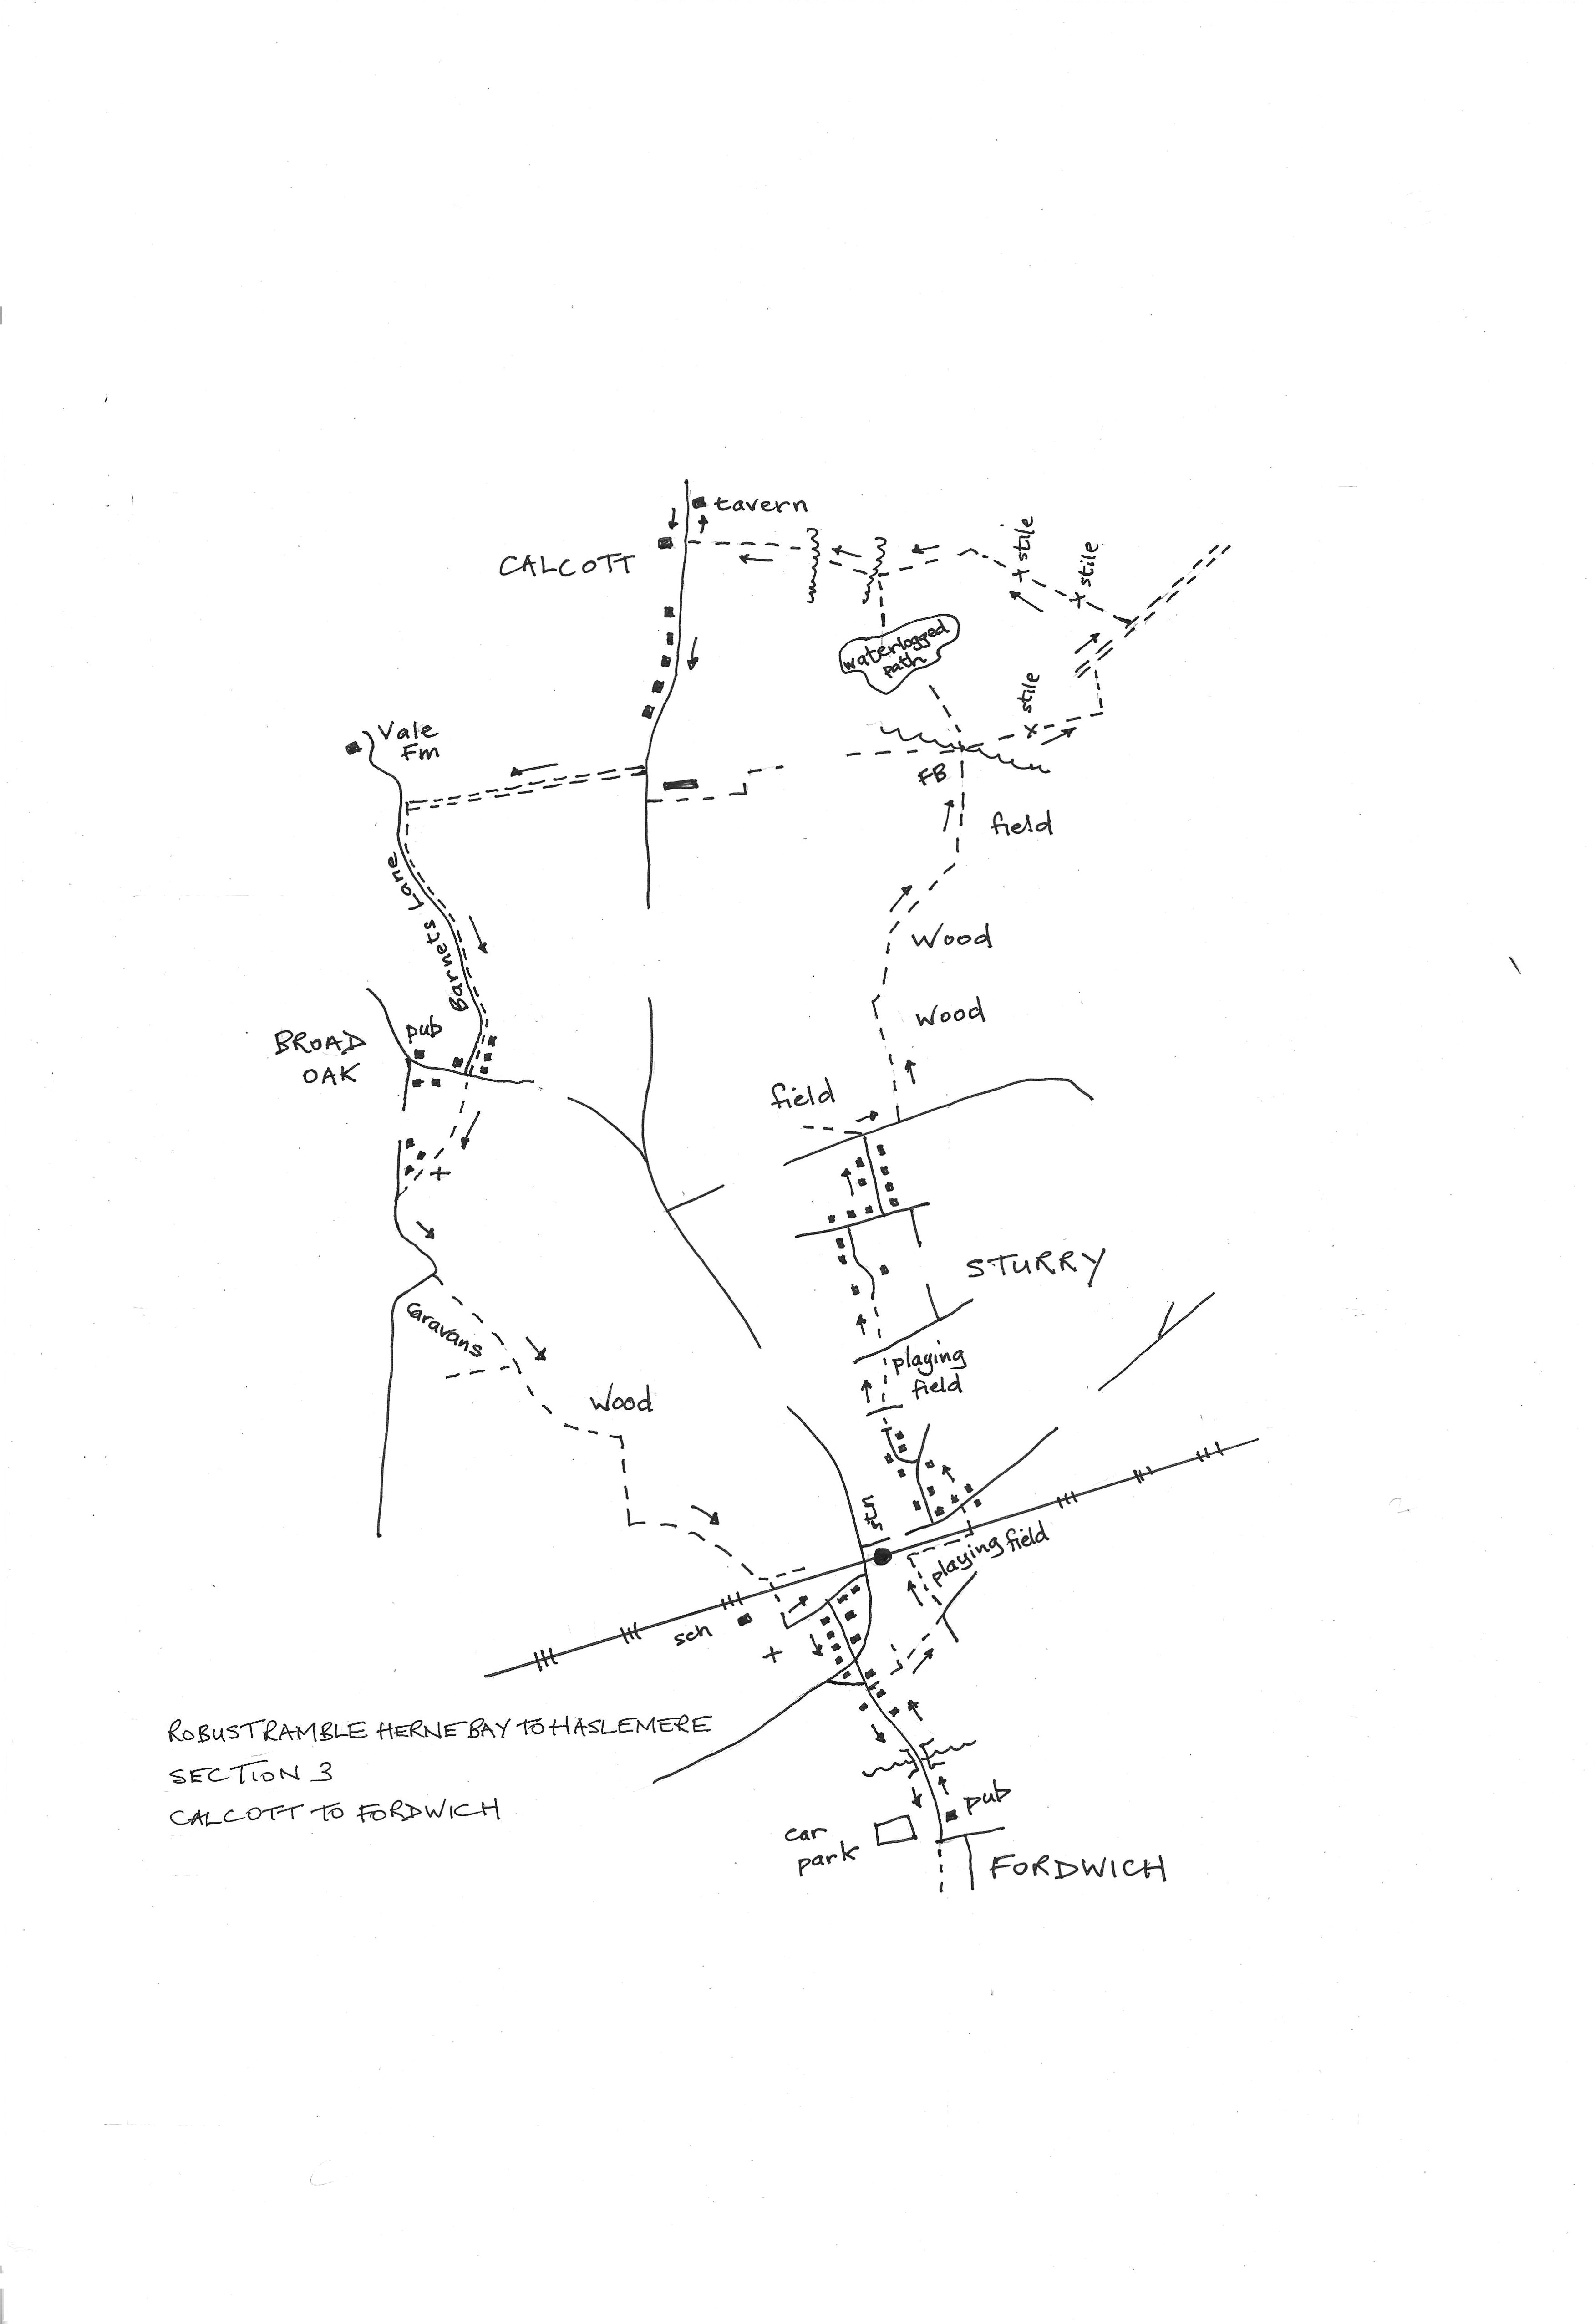 tavern
CALCOTT
stile
stile
waterlogged
path
stile
Vale
Fm
FB
field
Barnets Lane
Wood
Wood
BROAD
OAK
pub
field
STURRY
Caravans
playing
field
Wood
stn
playing field
sch
ROBUST RAMBLE HERNE BAY TO HASLEMERE
SECTION 3
CALCOTT TO FORDWICH
pub
car
park
FORDWICH